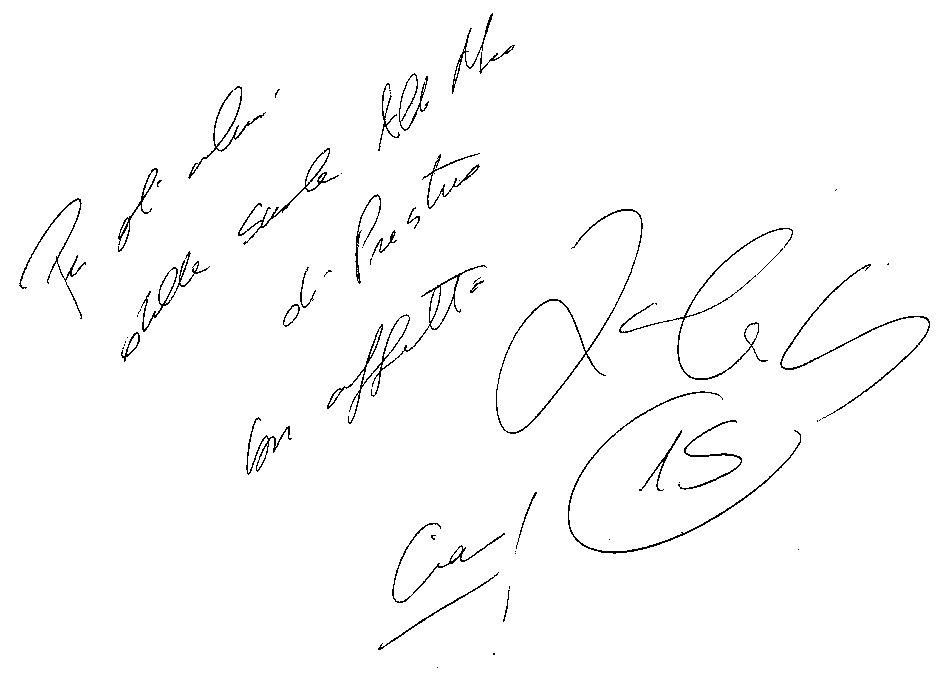 Per gli alunni
delle scuole Aldo Moro
di Prestino
con affetto
15
Ciao!